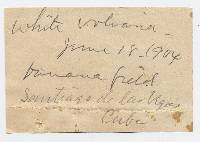 white 
June 18 - 1904
banana field
Santiago de las Vegas
Cuba